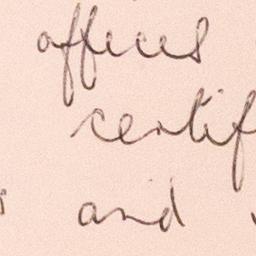 offices
certif
and